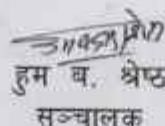 हुम ब. श्रेष्ठ
सञ्चालक